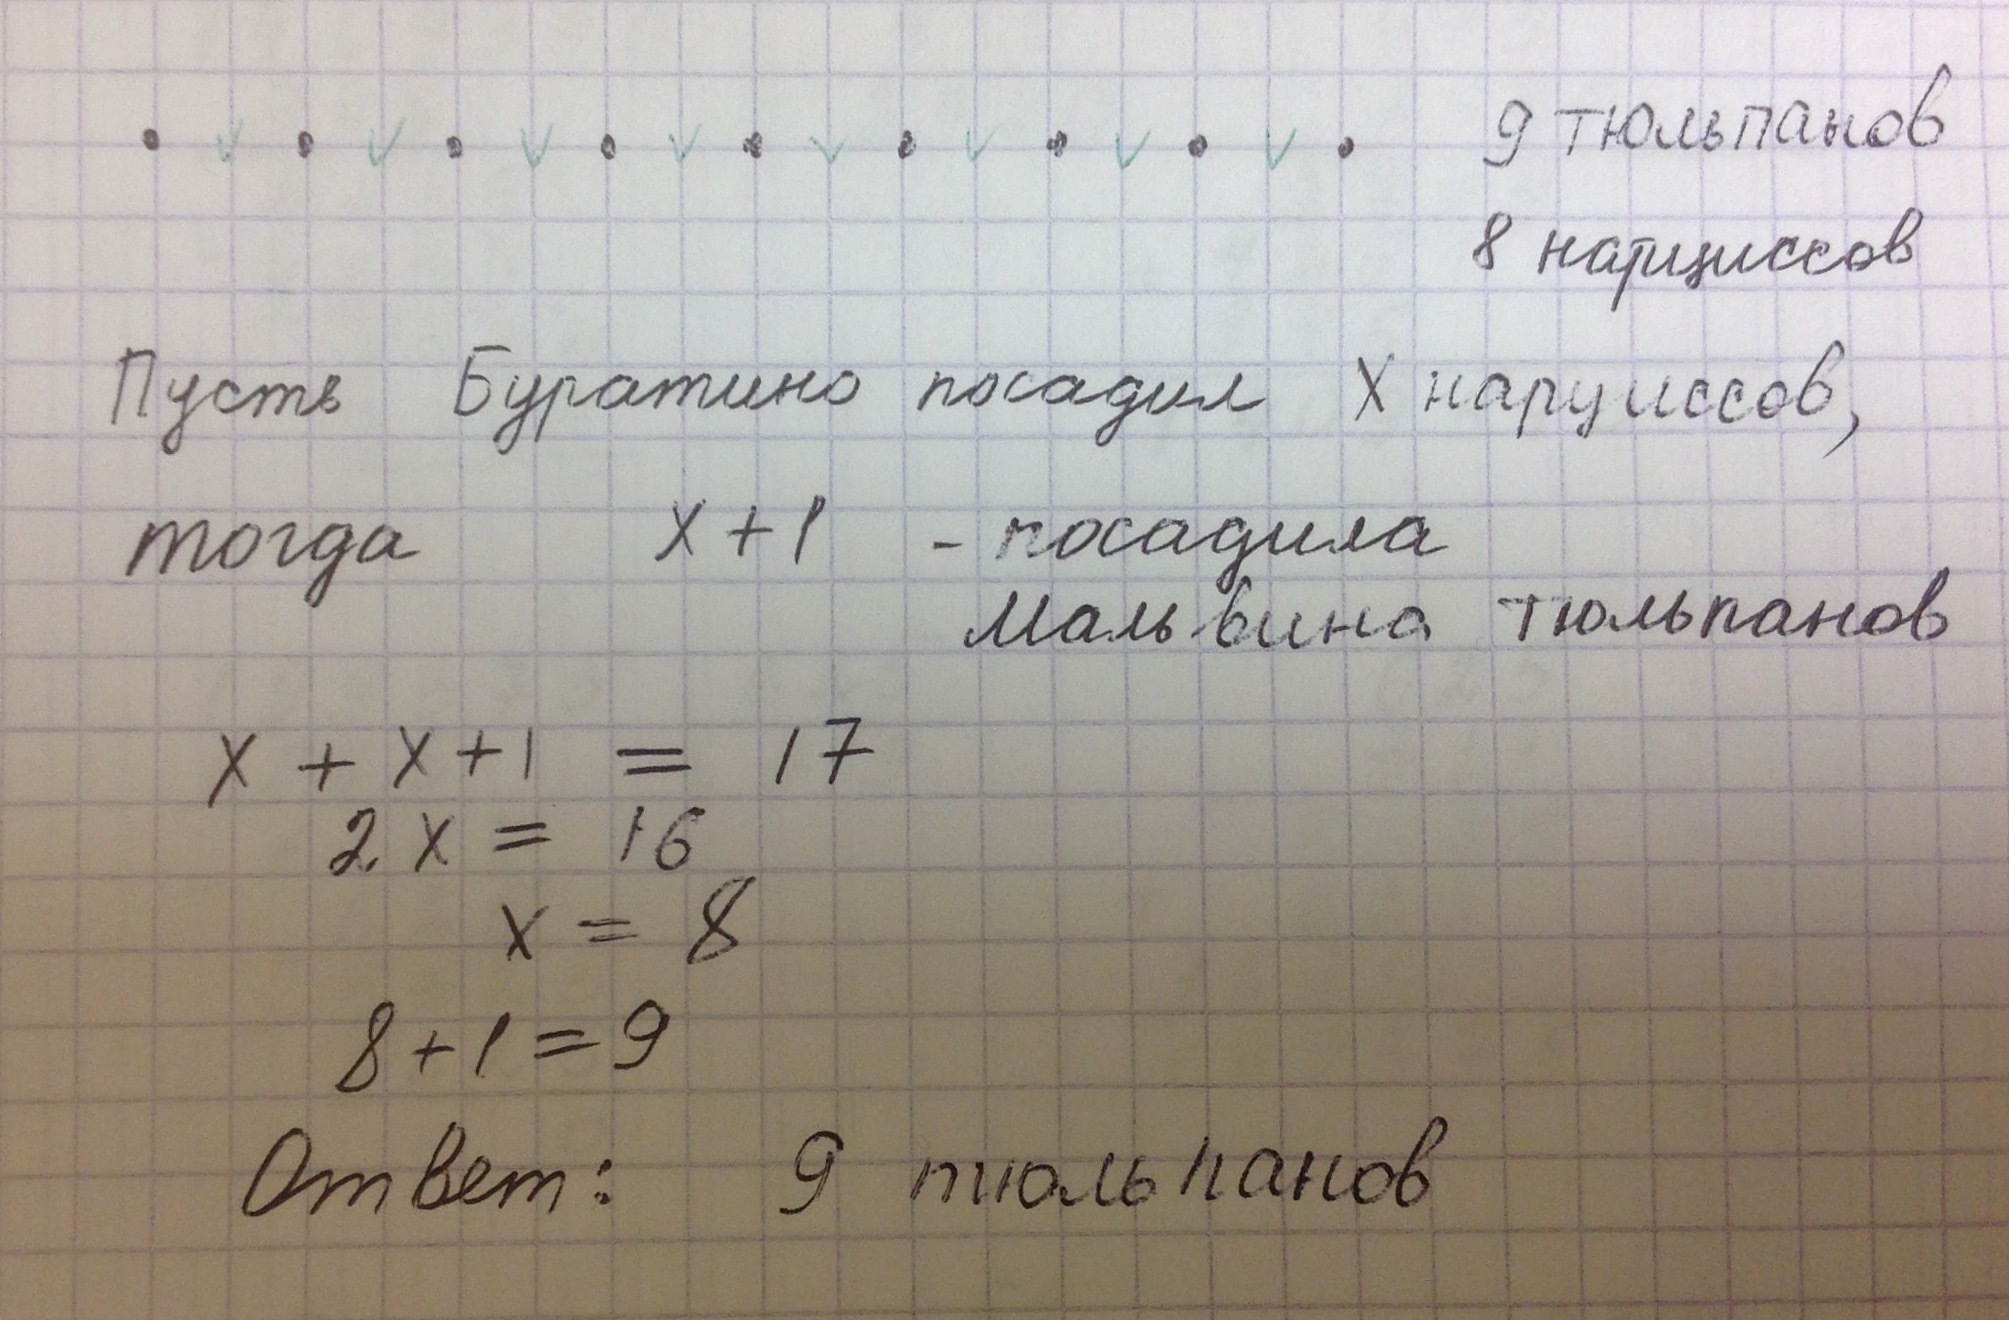 9 тюльпанов
8 нарциссов
Пусть Буратино посадил x нарциссов,
тогда x + 1 - посадила
Мальвина тюльпанов
x + x + 1 = 17
2x = 16
x = 8
8 + 1 = 9
Ответ: 9 тюльпанов